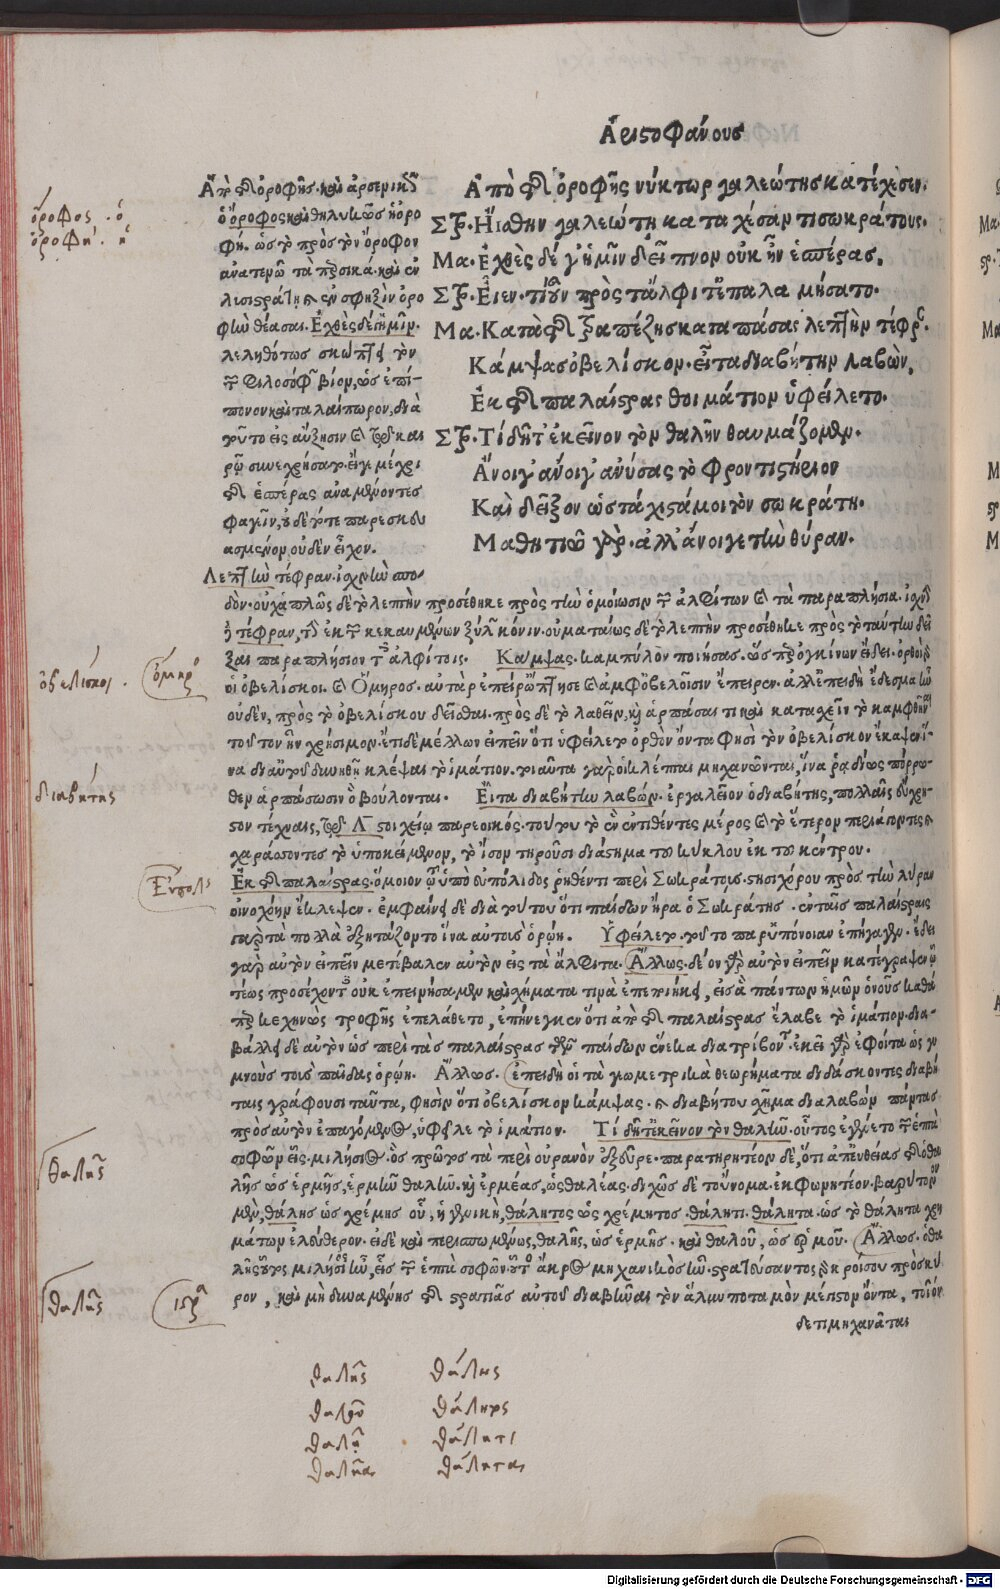 Ἀριστοφάνους
Ἀπὸ τῆς ὀροφῆς νύκτωρ γαλεώτης κατέχεσεν.
ΣΤρ. Ἥσθην γαλεώτη καταχέσαντι σωκράτους.
Μα. Ἐχθὲς δέ γ' ἡμῖν δεῖπνον οὐκ ἦν ἑσπέρας.
ΣΤρ. Εἶεν. τί οὖν πρὸς τἄλφιτ' ἐπαλαμήσατο.
Μα. Κατὰ τῆς τραπέζης καταπάσας λεπτὴν τέφραν.
Κάμψας ὀβελίσκον. εἶτα διαβήτην λαβὼν,
Ἐκ τῆς παλαίστρας θοιμάτιον ὑφείλετο.
ΣΤρ. Τί δῆτ' ἐκεῖνον τὸν θαλῆν θαυμάζομεν.
Ἄνοιγ' ἄνοιγ' ἀνύσας τὸ φροντιστήριον
Καὶ δεῖξον ὡς τάχιστά μοι τὸν σωκράτη.
Μαθητιῶ γάρ. ἀλλ' ἄνοιγε τὴν θύραν.
Ἀπὸ τῆς ὀροφῆς. καὶ ἀρσενικῶς
ὁ ὄροφος καὶ θηλυκῶς ἡ ὀρο
φή. ὡς τὸ πρὸς τὸν ὄροφον
λεληθότως σκώπτει τὸν
τῶν φιλοσόφων βίον, ὡς ἐπί-
πονον καὶ ταλαίπωρον. διὰ
τοῦτο εἰς αὔξησιν καὶ
τῆς ἑσπέρας ἀναμένοντες
φαγεῖν, οὐδὲ τότε παρεσκευ
ασμένον οὐδὲν εἶχον.
Λεπτὴν τέφραν. ἰσχνὴν σπο-
δόν. οὐχ ἁπλῶς δὲ τὸ λεπτὴν προσέθηκε πρὸς τὴν ὁμοίωσιν τῶν ἀλφίτων καὶ τὰ παραπλήσια.
ἢ τέφραν, τὴν ἐκ τῶν κεκαυμένων ξύλων κόνιν. οὐ ματαίως δὲ τὸ λεπτὴν προσέθηκε πρὸς τὸ ταύτην δεῖ
ξαι παραπλήσιον τοῖς ἀλφίτοις. Κάμψας. καμπύλον ποιήσας.
οἱ ὀβελίσκοι. καὶ Ὅμηρος. αὐτὰρ ἐπεί ῥ' ὤπτησε καὶ ἀμφ' ὀβελοῖσιν ἔπειρεν. ἀλλ' ἐπειδὴ ἔδεσμα ἦν
οὐδὲν, πρὸς τὸ ὀβελίσκου δεῖσθαι. πρὸς δὲ τὸ λαθεῖν, καὶ ἁρπάσαι τι καὶ κατασχεῖν τὸ καμφθῆναι
τοῦτον ἦν χρήσιμον. ἔτι δὲ μέλλων εἰπεῖν ὅτι ὑφείλετο ὀρθὸν ὄντα φησὶ τὸν ὀβελίσκον ἔκαψεν ἵ-
να διὰ τοῦ δυνηθῇ κλέψαι τὸ ἱμάτιον. τοιαῦτα γὰρ οἱ κλέπται μηχανῶνται, ἵνα ῥαδίως πόρρω-
θεν ἁρπάσωσιν ὃ βούλονται. Εἶτα διαβήτην λαβών. ἐργαλεῖον ὁ διαβήτης, πολλαῖς εὔχρη-
στον τέχναις, τῷ Λ στοιχείῳ παρεοικός. τούτου τὸ ἓν ἐντιθέντες μέρος καὶ τὸ ἕτερον περιάγοντες καὶ
χαράσσοντες τὸ ὑποκείμενον, τὸ ἴσον τηροῦσι διάστημα τοῦ κύκλου ἐκ τοῦ κέντρου.
Ἐκ τῆς παλαίστρας. ὅμοιον τῷ ὑπὸ εὐπόλιδος ῥηθέντι περὶ Σωκράτους. στησιχόρου πρὸς τὴν λύραν
οἰνοχόην ἔκλεψεν. ἐμφαίνει δὲ διὰ τούτου ὅτι παίδων ἤρα ὁ Σωκράτης. ἐν ταῖς παλαίστραις
γὰρ τὰ πολλὰ ἐξητάζοντο ἵνα αὐτοὺς ὁρῴη. Ὑφείλετο. τοῦτο παρ' ὑπόνοιαν ἐπήγαγεν. ἔδει
γὰρ αὐτὸν εἰπεῖν μετέβαλεν αὐτὸν εἰς τὰ ἄλφιτα. Ἄλλως. δέον γὰρ αὐτὸν εἰπεῖν κατέγραψεν
τέως προσέχοντες οὐκ ἐπεινήσαμεν
κεχηνὼς τροφῆς ἐπελάθετο, ἐπήνεγκεν ὅτι ἀπὸ τῆς παλαίστρας ἔλαβε τὸ ἱμάτιον. δια-
βάλλει δὲ αὐτὸν ὡς περὶ τὰς παλαίστρας τῶν παίδων ἕνεκα διατρίβοντα. ἐκεῖ γὰρ ἐφοίτα ὡς γυ
μνοὺς τοὺς παῖδας ὁρῴη. Ἄλλως. ἐπειδὴ οἱ τὰ γεωμετρικὰ θεωρήματα διδάσκοντες διαβή
ταις γράφουσι ταῦτα, φησὶν ὅτι ὀβελίσκον κάμψας. καὶ διαβήτου σχῆμα διαλαβὼν πάντας
πρὸς αὐτὸν ἐπαγόμενος, ὑφείλε τὸ ἱμάτιον. Τί δῆτ' ἐκεῖνον τὸν θαλῆν. οὗτος ἐγένετο τῶν ἑπτὰ
σοφῶν εἷς. μιλήσιος. ὃς πρῶτος τὰ περὶ οὐρανὸν ἐξεῦρε. παρατηρητέον δὲ, ὅτι ἀπ' εὐθείας τῆς ὁ θα
λῆς ὡς ἑρμῆς, ἑρμῆν θαλῆν. καὶ ἑρμέας, ὡς θαλέας. διχῶς δὲ τοὔνομα ἐκφωνητέον. βαρυτονού
μενον, θάλης ὡς χρέμης οὗ, ἡ γενικὴ, θάλητος ὡς χρέμητος. θάλητι. θάλητα. ὡς τὸ θάλητα χρη
μάτων ἐλεύθερον. εἰ δὲ καὶ περισπωμένως, θαλῆς, ὡς ἑρμῆς. καὶ θαλοῦ, ὡς ἑρμοῦ. Ἄλλως. ὁ θα
λῆς οὗτος μιλήσιος ἦν, εἷς τῶν ἑπτὰ σοφῶν. οὗτος ἄκρος μηχανικὸς ἦν. στρατεύσαντος δὲ κροίσου πρὸς κύ
ρον, καὶ μὴ δυναμένης τῆς στρατιᾶς αὐτοῦ διαβῆναι τὸν ἅλυν ποταμὸν μέγιστον ὄντα, τοιόν
δε τι μηχανᾶται
ὄροφος. ὁ
ὀροφή. ἡ
ὀβελίσκοι.
ὅμηρος
διαβήτης
Εὔπολις
θαλῆς
θαλῆς
θαλῆς θάλης
θαλοῦ θάλητος
θαλῇ θάλητι
θάλητα
Digitalisierung gefördert durch die Deutsche Forschungsgemeinschaft - DFG